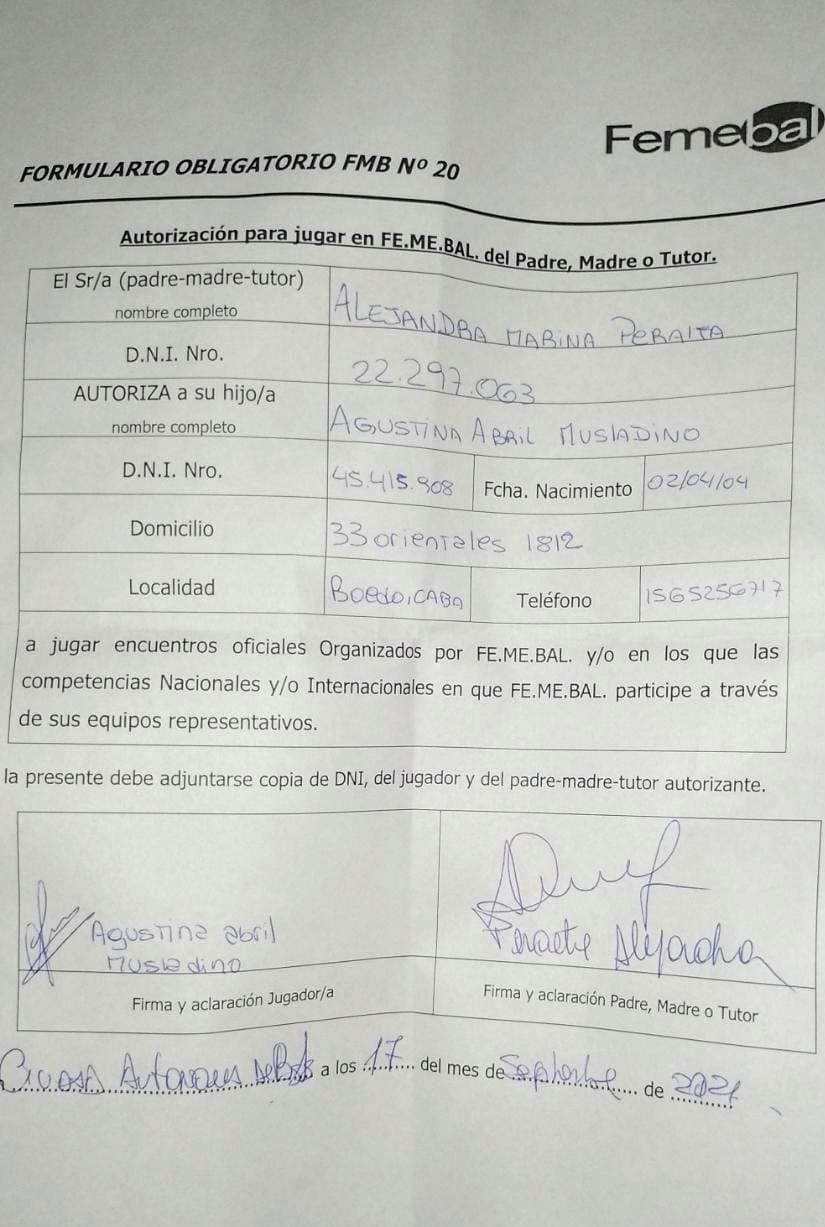 Femebal
FORMULARIO OBLIGATORIO FMB Nº 20
Autorización para jugar en FE.ME.BAL. del Padre, Madre o Tutor.
El Sr/a (padre-madre-tutor)
nombre completo
ALEJANDRA MARINA PERALTA
D.N.I. Nro.
22.297.063
AUTORIZA a su hijo/a
nombre completo
AGUSTINA ABRIL MUSLADINO
D.N.I. Nro.
45.415.908
Fcha. Nacimiento
02/04/04
Domicilio
33 orientales 1812
Localidad
BOEDO, CABA
Teléfono
1565256717
a jugar encuentros oficiales Organizados por FE.ME.BAL. y/o en los que las
competencias Nacionales y/o Internacionales en que FE.ME.BAL. participe a través
de sus equipos representativos.
la presente debe adjuntarse copia de DNI, del jugador y del padre-madre-tutor autorizante.
Agustina abril
Musladino
Peralta Alejandra
Firma y aclaración Jugador/a
Firma y aclaración Padre, Madre o Tutor
a los 17 del mes de Septiembre de 2021